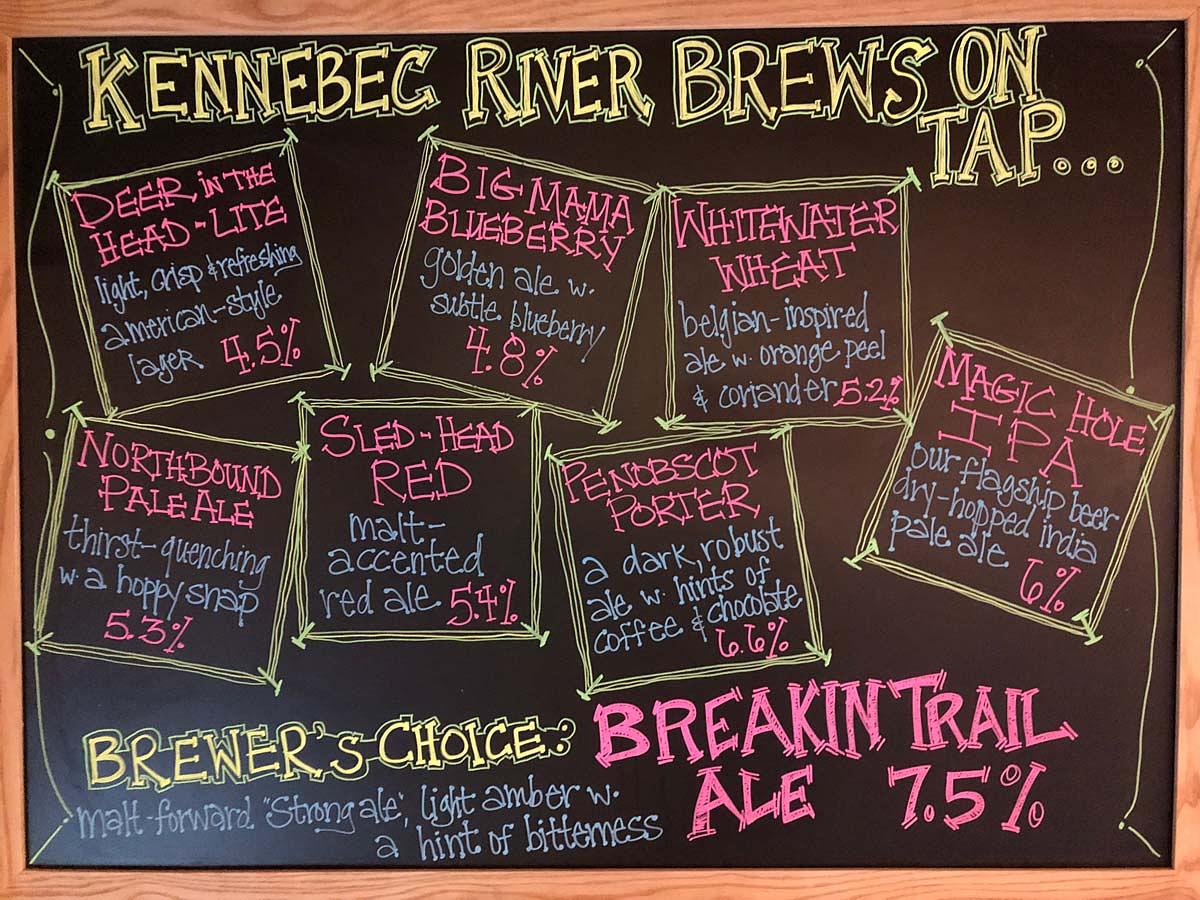 KENNEBEC RIVER BREWS ON
TAP...
DEER IN THE
HEAD-LITE
light, crisp & refreshing
american-style
lager 4.5%
BIG MAMA
BLUEBERRY
golden ale w.
subtle blueberry
4.8%
WHITEWATER
WHEAT
belgian-inspired
ale w. orange peel
& coriander 5.2%
MAGIC HOLE
IPA
our flagship beer
dry-hopped india
pale ale
6%
NORTHBOUND
PALE ALE
thirst-quenching
w. a hoppy snap
5.3%
SLED-HEAD
RED
malt-
accented
red ale 5.4%
PENOBSCOT
PORTER
a dark, robust
ale w. hints of
coffee & chocolate
6.6%
BREWER'S CHOICE:
BREAKIN TRAIL
ALE 7.5%
malt-forward "Strong ale", light amber w.
a hint of bitterness